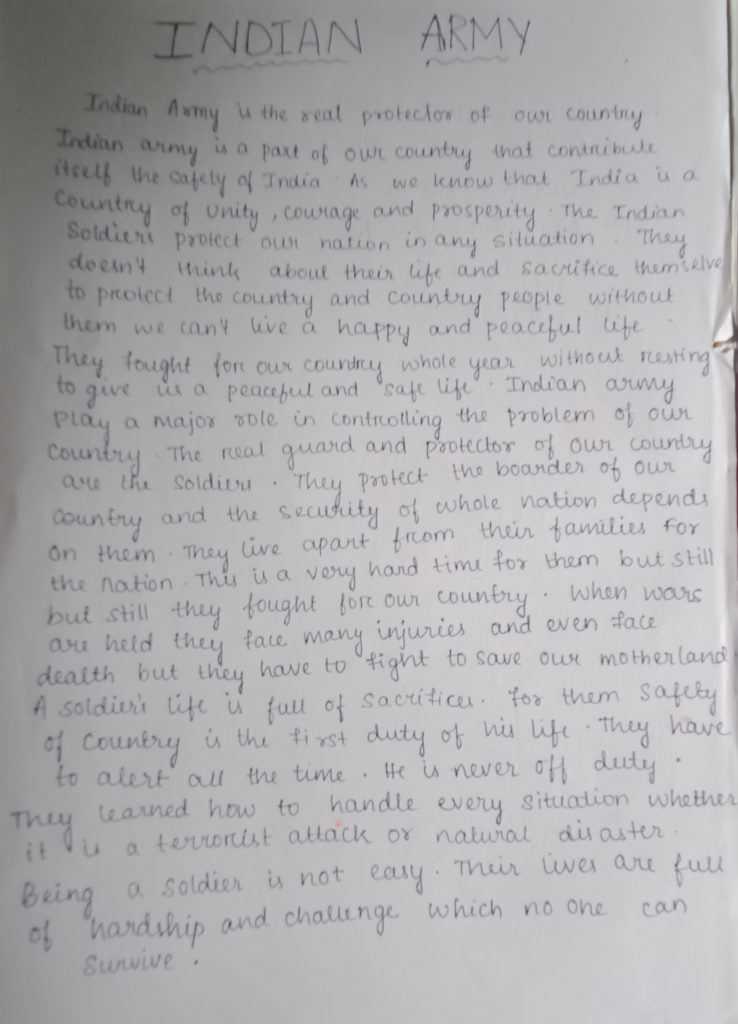 INDIAN ARMY
Indian Army is the real protector of our country.
Indian army is a part of our country that contribute
itself the safety of India. As we know that India is a
Country of Unity, courage and prosperity. The Indian
Soldiers protect our nation in any situation. They
doesn't think about their life and sacrifice themselve
to protect the country and country people without
them we can't live a happy and peaceful life.
They fought for our country whole year without resting
to give us a peaceful and safe life. Indian army
Play a major role in controlling the problem of our
Country. The real guard and protector of our country
are the Soldiers. They protect the boarder of our
Country and the security of whole nation depends
on them. They live apart from their families For
the nation. This is a very hard time for them but still
but still they fought for our country. When wars
are held they face many injuries and even face
dealth but they have to fight to save our motherland.
A soldier's life is full of sacrifices. For them Safety
of Country is the first duty of his life. They have
to alert all the time. He is never off duty.
They learned how to handle every situation whether
it is a terrorist attack or natural disaster.
Being a soldier is not easy. Their lives are full
of hardship and challenge which no one can
Survive.